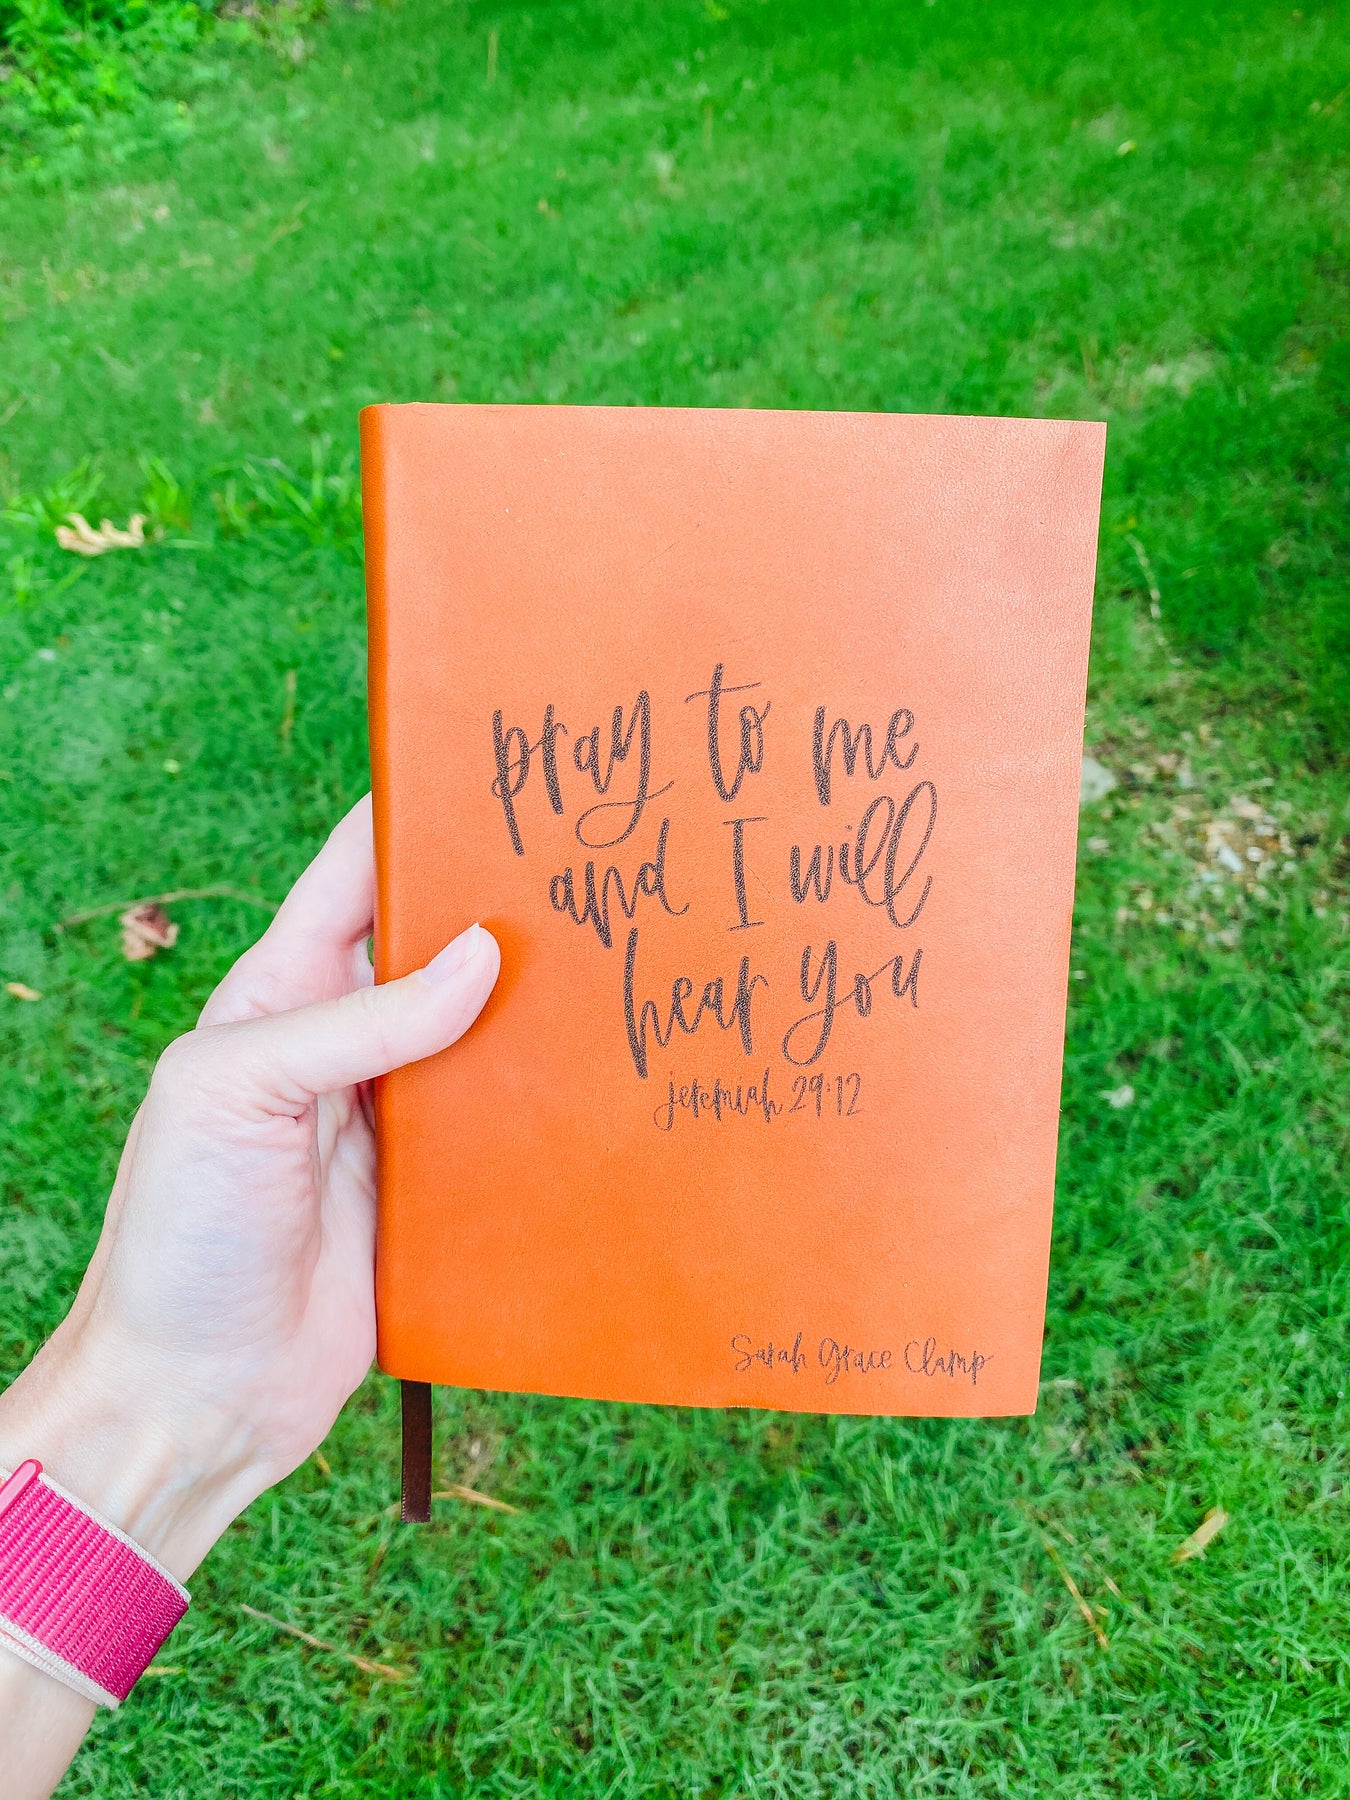 pray to me
and I will
hear you
jeremiah 29:12
Sarah Grace Clamp